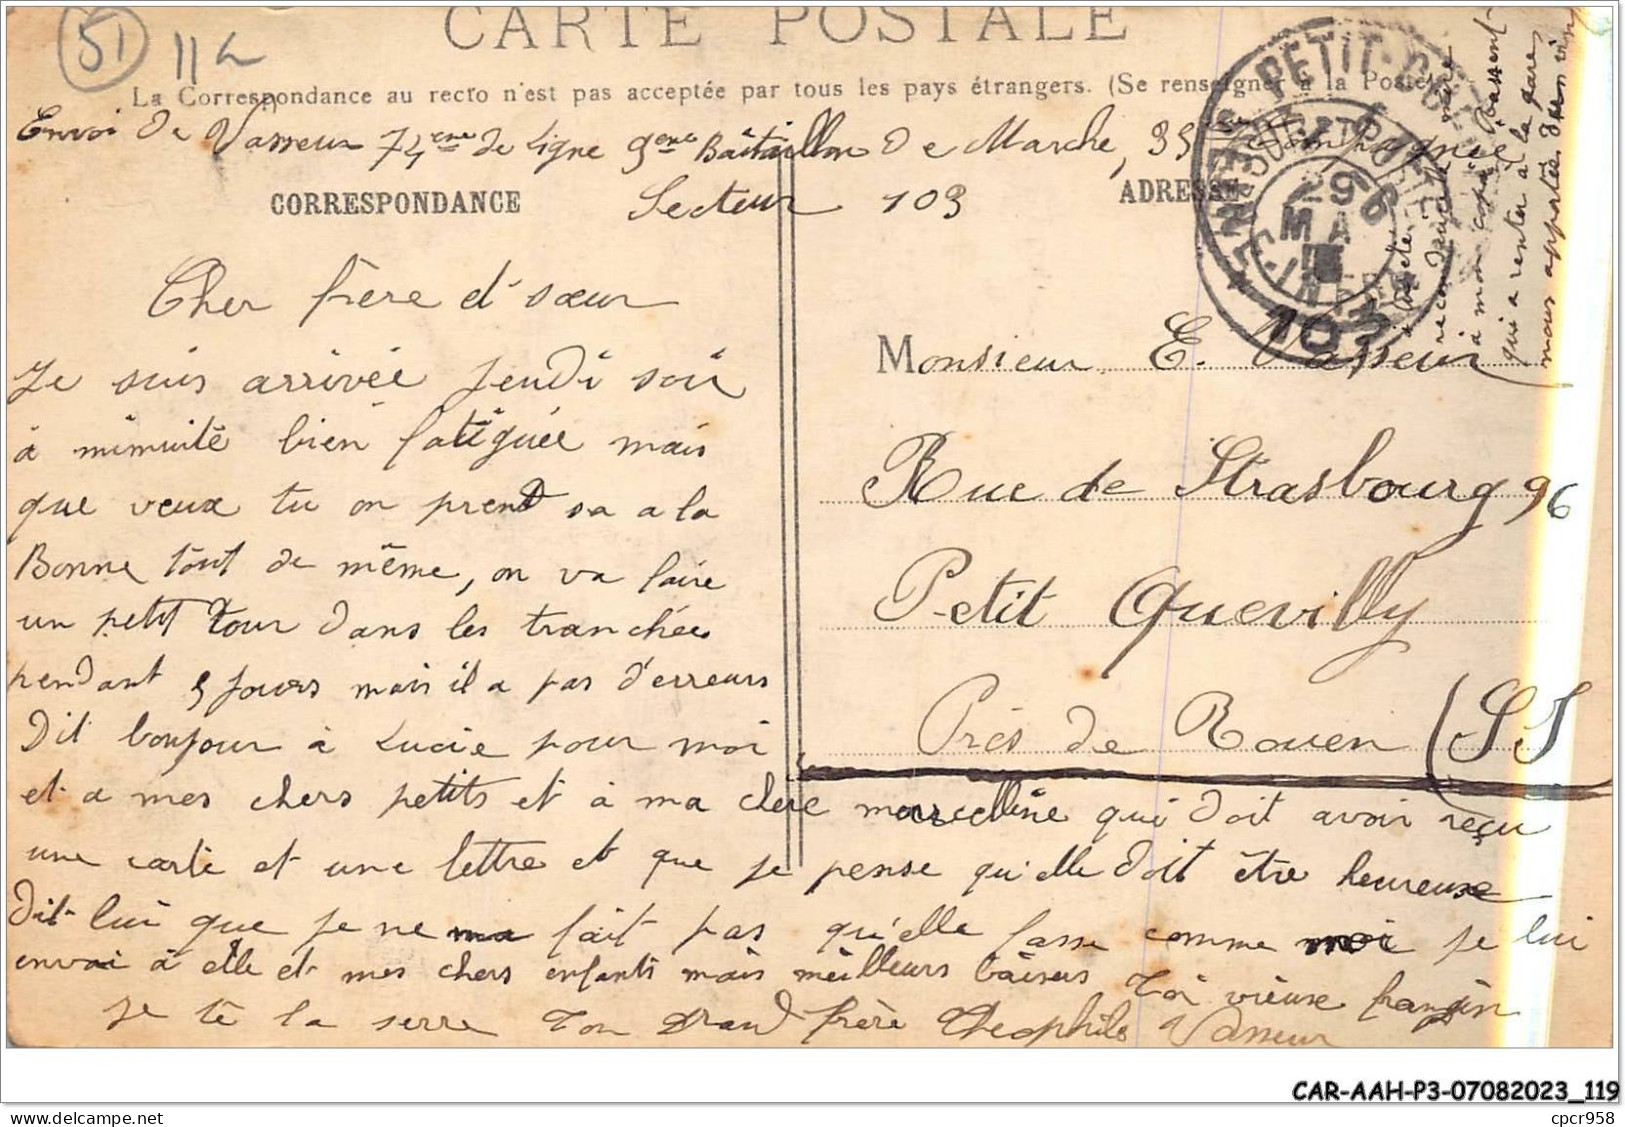 51 112
CARTE POSTALE
La Correspondance au recto n'est pas acceptée par tous les pays étrangers. (Se renseigner à la Poste)
Envoi de Vasseur 74ème de Ligne 9ème Bataillon de Marche, 35ème Compagnie
Secteur 103
CORRESPONDANCE
Cher frère et sœur
Je suis arrivée jeudi soir
à minuite bien fatiguée mais
que veux tu on prend sa a la
Bonne tout de même, on va faire
un petit tour dans les tranchées
pendant 5 jours mais il a pas d'erreurs
Dit bonjour à Lucie pour moi
et a mes chers petits et à ma chere marcelline qui doit avoir reçu
une carte et une lettre et que je pense qu'elle doit être heureuse
Dit lui que je ne fait pas qu'elle fasse comme moi je lui
envoi à elle et mes chers enfants mais meilleurs baisers Toi vieux frangin
je te la serre Ton Grand frère Theophile Vasseur
ADRESSE
Monsieur E. Vasseur
Rue de Strasbourg 96
Petit Quevilly
Près de Rouen (SI
PETIT-QUEVILLY
29
MA
SEINE-INFRE
10
à mon copain Vassent
qui a renter à la gare,
nous apportés du vin
CAR-AAH-P3-07082023_119
© delcampe.net
cpcr958